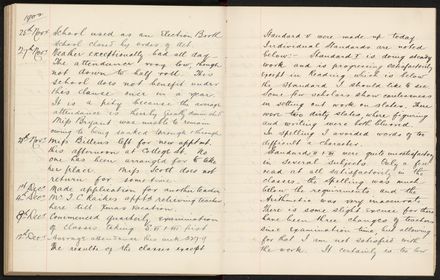 1902
25th Nov. School used as an Election Booth
School closed by order of Dct.
27th Nov. Weather exceptionally bad all day
The attendance very low, though
not down to half roll. This
school does not benefit under
this clause once in a year.
It is a pity because the average
attendance is thereby greatly
Miss Bryant was unable to
owing to being soaked through & through
28th Nov. Miss Billens left for new appt.
this afternoon at College St. No
one has been arranged for to take
her place. Miss Scott does not
return for some time.
1st Dec. Made application for another teacher
4th Dec. Mr. J. C. appt. relieving teacher
here till Xmas vacation.
8th Dec. Commenced quarterly examination
of classes taking S. VI & VII first
12th Dec. Average attendance this week
The results of the classes except
Standard V were made up today
Individual Standards are noted
below:- Standard I is doing steady
work and is progressing satisfactorily
except in Reading which is below
the Standard I should like to see.
Some few scholars show
in setting out work on slates. There
were two dirty slates where figuring
and writing were both blurred.
In spelling I avoided words of too
difficult a character.
Standards II & III were quite unsatisfactory
in several subjects. Only a few
read at all satisfactorily in the
classes, the spelling was much
below the requirements and the
Arithmetic was very inaccurate.
There is some slight excuse for there
have been three changes of teachers
since examination time, but allowing
for that I am not satisfied with
the work. It certainly is too low